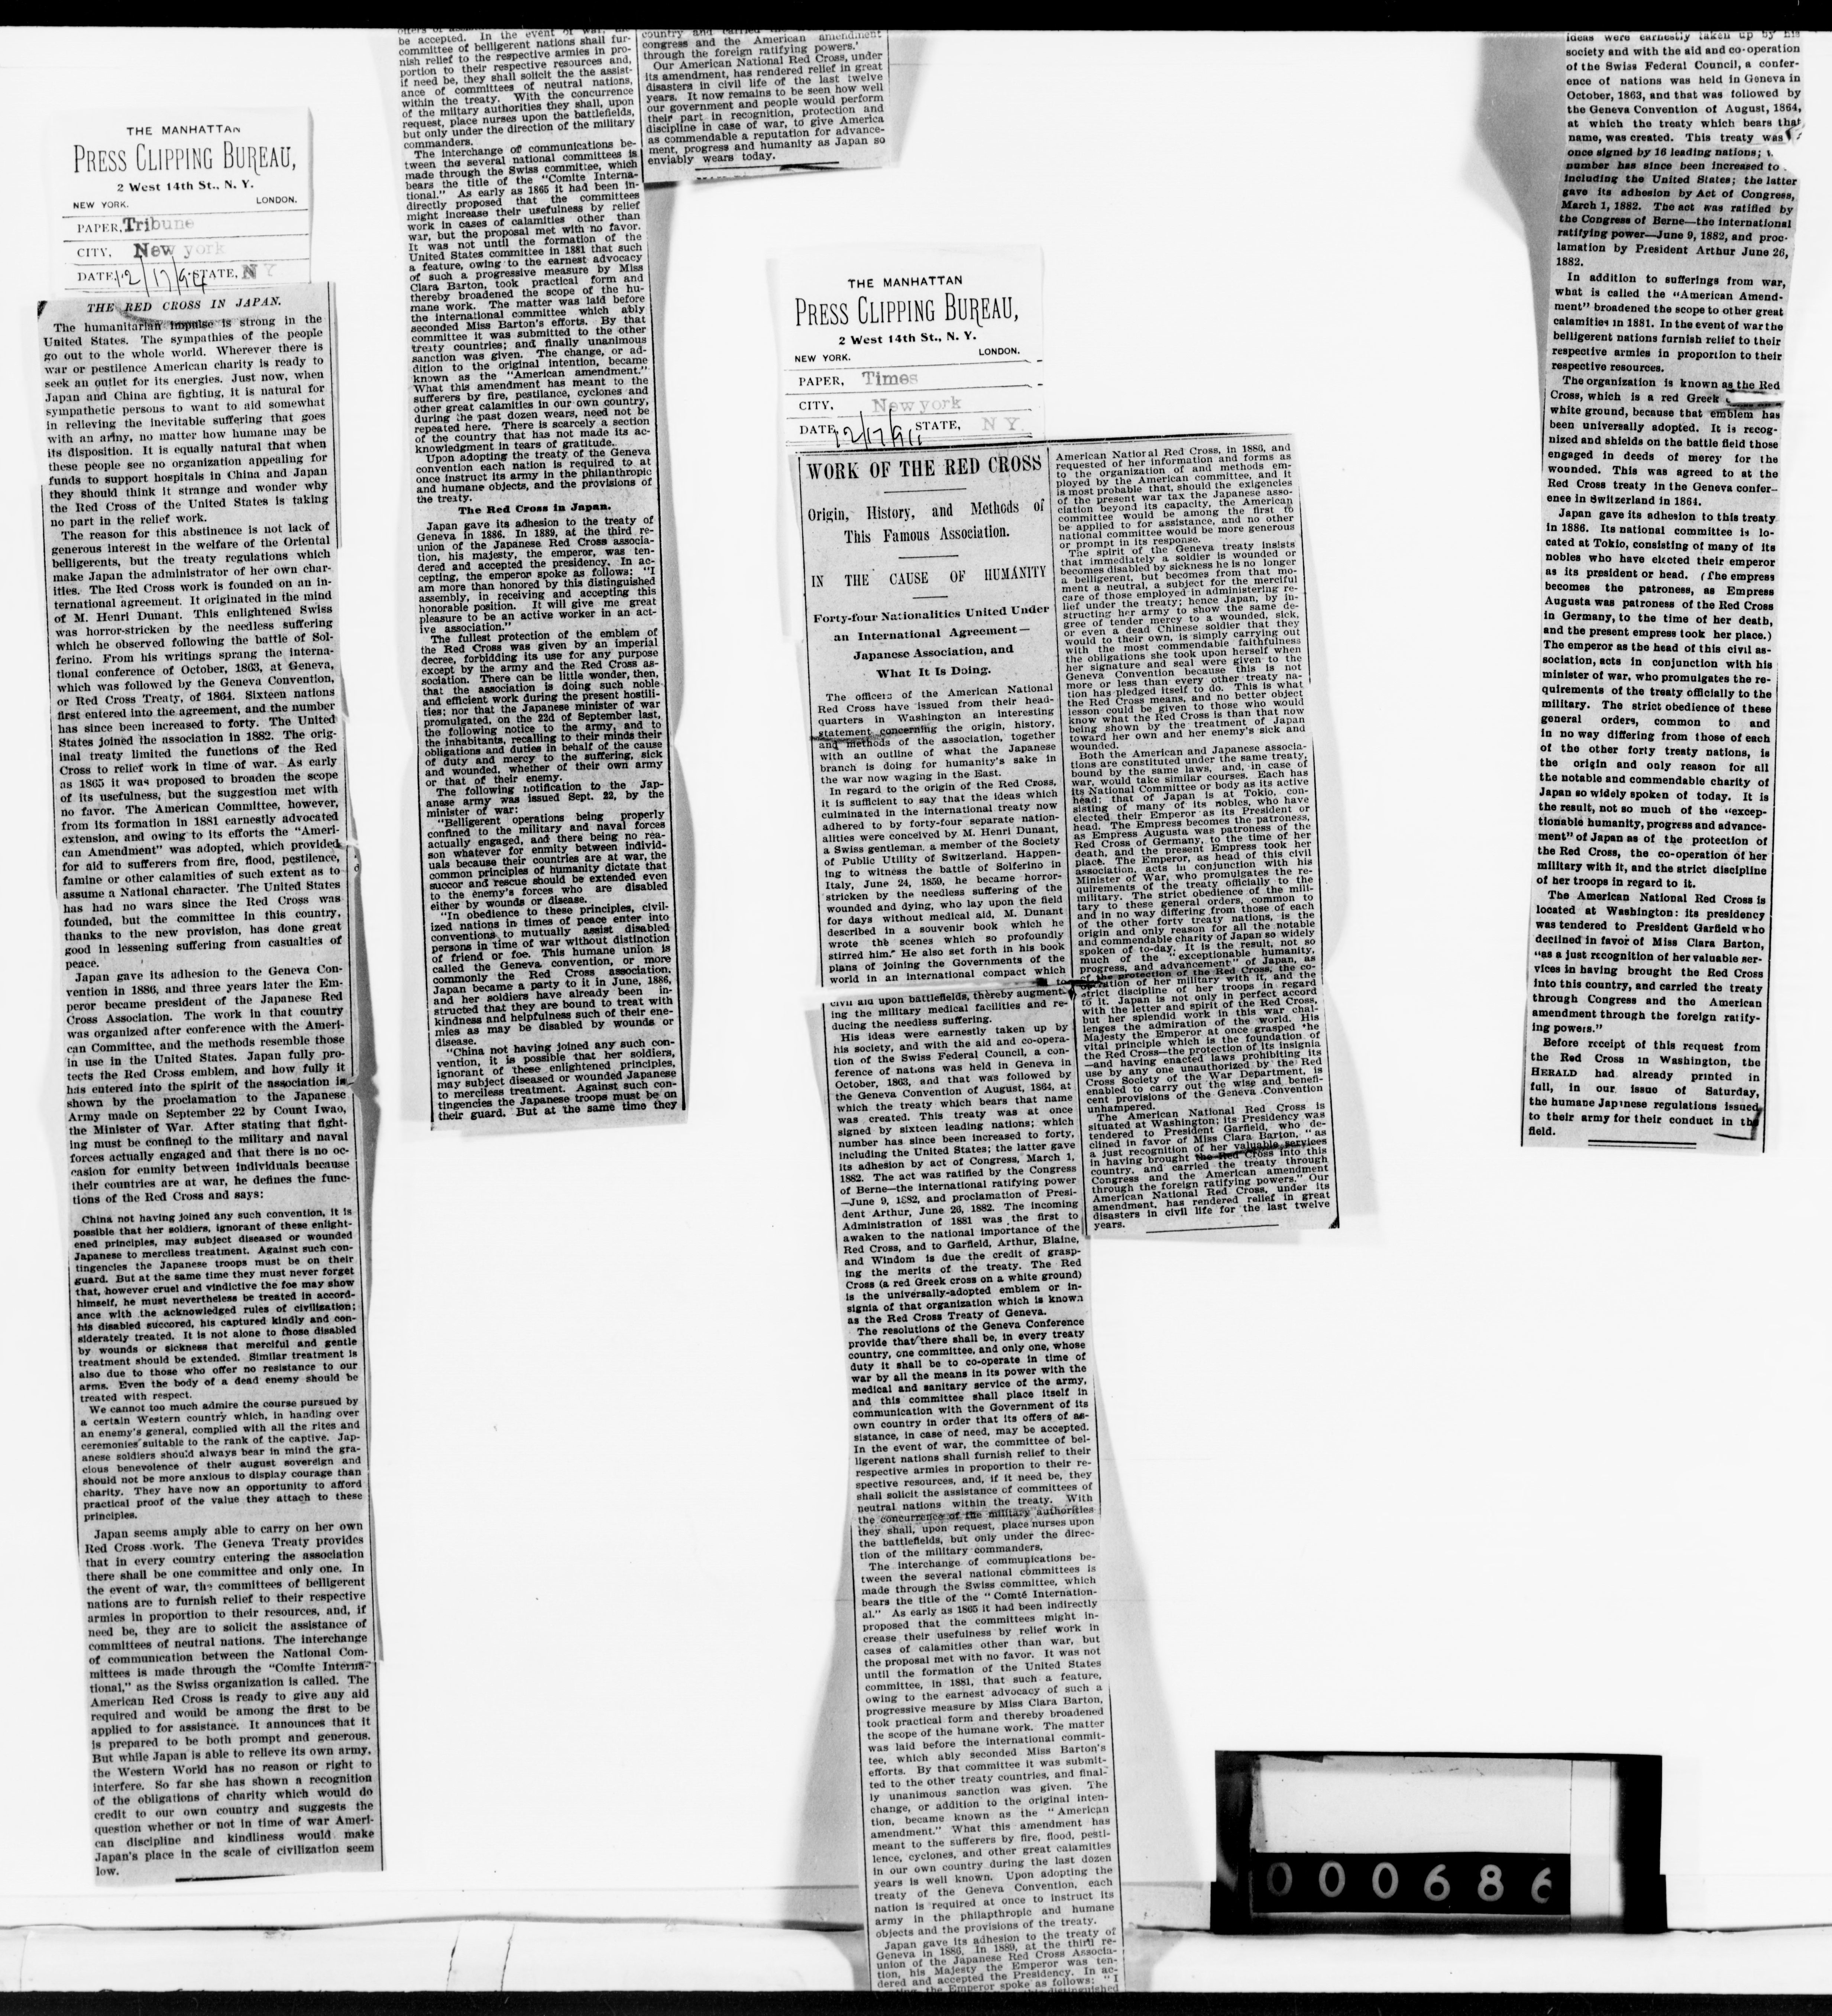 THE MANHATTAN
PRESS CLIPPING BUREAU,
2 West 14th St., N. Y.
NEW YORK. LONDON.
PAPER, Tribune
CITY, New york
DATE, 12/17/94 STATE, N Y
THE RED CROSS IN JAPAN.
The humanitarian impulse is strong in the
United States. The sympathies of the people
go out to the whole world. Wherever there is
war or pestilence American charity is ready to
seek an outlet for its energies. Just now, when
Japan and China are fighting, it is natural for
sympathetic persons to want to aid somewhat
in relieving the inevitable suffering that goes
with an army, no matter how humane may be
its disposition. It is equally natural that when
these people see no organization appealing for
funds to support hospitals in China and Japan
they should think it strange and wonder why
the Red Cross of the United States is taking
no part in the relief work.
The reason for this abstinence is not lack of
generous interest in the welfare of the Oriental
belligerents, but the treaty regulations which
make Japan the administrator of her own char-
ities. The Red Cross work is founded on an in-
ternational agreement. It originated in the mind
of M. Henri Dunant. This enlightened Swiss
was horror-stricken by the needless suffering
which he observed following the battle of Sol-
ferino. From his writings sprang the interna-
tional conference of October, 1863, at Geneva,
which was followed by the Geneva Convention,
or Red Cross Treaty, of 1864. Sixteen nations
first entered into the agreement, and the number
has since been increased to forty. The United
States joined the association in 1882. The orig-
inal treaty limited the functions of the Red
Cross to relief work in time of war. As early
as 1865 it was proposed to broaden the scope
of its usefulness, but the suggestion met with
no favor. The American Committee, however,
from its formation in 1881 earnestly advocated
extension, and owing to its efforts the "Ameri-
can Amendment" was adopted, which provided
for aid to sufferers from fire, flood, pestilence,
famine or other calamities of such extent as to
assume a National character. The United States
has had no wars since the Red Cross was
founded, but the committee in this country,
thanks to the new provision, has done great
good in lessening suffering from casualties of
peace.
Japan gave its adhesion to the Geneva Con-
vention in 1886, and three years later the Em-
peror became president of the Japanese Red
Cross Association. The work in that country
was organized after conference with the Ameri-
can Committee, and the methods resemble those
in use in the United States. Japan fully pro-
tects the Red Cross emblem, and how fully it
has entered into the spirit of the association is
shown by the proclamation to the Japanese
Army made on September 22 by Count Iwao,
the Minister of War. After stating that fight-
ing must be confined to the military and naval
forces actually engaged and that there is no oc-
casion for enmity between individuals because
their countries are at war, he defines the func-
tions of the Red Cross and says:
China not having joined any such convention, it is
possible that her soldiers, ignorant of these enlight-
ened principles, may subject diseased or wounded
Japanese to merciless treatment. Against such con-
tingencies the Japanese troops must be on their
guard. But at the same time they must never forget
that, however cruel and vindictive the foe may show
himself, he must nevertheless be treated in accord-
ance with the acknowledged rules of civilization;
his disabled succored, his captured kindly and con-
siderately treated. It is not alone to those disabled
by wounds or sickness that merciful and gentle
treatment should be extended. Similar treatment is
also due to those who offer no resistance to our
arms. Even the body of a dead enemy should be
treated with respect.
We cannot too much admire the course pursued by
a certain Western country which, in handing over
an enemy's general, complied with all the rites and
ceremonies suitable to the rank of the captive. Jap-
anese soldiers should always bear in mind the gra-
cious benevolence of their august sovereign and
should not be more anxious to display courage than
charity. They have now an opportunity to afford
practical proof of the value they attach to these
principles.
Japan seems amply able to carry on her own
Red Cross work. The Geneva Treaty provides
that in every country entering the association
there shall be one committee and only one. In
the event of war, the committees of belligerent
nations are to furnish relief to their respective
armies in proportion to their resources, and, if
need be, they are to solicit the assistance of
committees of neutral nations. The interchange
of communication between the National Com-
mittees is made through the "Comite Interna-
tional," as the Swiss organization is called. The
American Red Cross is ready to give any aid
required and would be among the first to be
applied to for assistance. It announces that it
is prepared to be both prompt and generous.
But while Japan is able to relieve its own army,
the Western World has no reason or right to
interfere. So far she has shown a recognition
of the obligations of charity which would do
credit to our own country and suggests the
question whether or not in time of war Ameri-
can discipline and kindliness would make
Japan's place in the scale of civilization seem
low.
be accepted. In the event of war, the
committee of belligerent nations shall fur-
nish relief to the respective armies in pro-
portion to their respective resources and,
if need be, they shall solicit the the assist-
ance of committees of neutral nations,
within the treaty. With the concurrence
of the military authorities they shall, upon
request, place nurses upon the battlefields,
but only under the direction of the military
commanders.
The interchange of communications be-
tween the several national committees is
made through the Swiss committee, which
bears the title of the "Comite Interna-
tional." As early as 1865 it had been in-
directly proposed that the committees
might increase their usefulness by relief
work in cases of calamities other than
war, but the proposal met with no favor.
It was not until the formation of the
United States committee in 1881 that such
a feature, owing to the earnest advocacy
of such a progressive measure by Miss
Clara Barton, took practical form and
thereby broadened the scope of the hu-
mane work. The matter was laid before
the international committee which ably
seconded Miss Barton's efforts. By that
committee it was submitted to the other
treaty countries; and finally unanimous
sanction was given. The change, or ad-
dition to the original intention, became
known as the "American amendment."
What this amendment has meant to the
sufferers by fire, pestilance, cyclones and
other great calamities in our own country,
during the past dozen wears, need not be
repeated here. There is scarcely a section
of the country that has not made its ac-
knowledgment in tears of gratitude.
Upon adopting the treaty of the Geneva
convention each nation is required to at
once instruct its army in the philanthropic
and humane objects, and the provisions of
the treaty.
The Red Cross in Japan.
Japan gave its adhesion to the treaty of
Geneva in 1886. In 1889, at the third re-
union of the Japanese Red Cross associa-
tion, his majesty, the emperor, was ten-
dered and accepted the presidency. In ac-
cepting, the emperor spoke as follows: "I
am more than honored by this distinguished
assembly, in receiving and accepting this
honorable position. It will give me great
pleasure to be an active worker in an act-
ive association."
The fullest protection of the emblem of
the Red Cross was given by an imperial
decree, forbidding its use for any purpose
except by the army and the Red Cross as-
sociation. There can be little wonder, then,
that the association is doing such noble
and efficient work during the present hostili-
ties; nor that the Japanese minister of war
promulgated, on the 22d of September last,
the following notice to the army, and to
the inhabitants, recalling to their minds their
obligations and duties in behalf of the cause
of duty and mercy to the suffering, sick
and wounded, whether of their own army
or that of their enemy.
The following notification to the Jap-
anese army was issued Sept. 22, by the
minister of war:
"Belligerent operations being properly
confined to the military and naval forces
actually engaged, and there being no rea-
son whatever for enmity between individ-
uals because their countries are at war, the
common principles of humanity dictate that
succor and rescue should be extended even
to the enemy's forces who are disabled
either by wounds or disease.
"In obedience to these principles, civil-
ized nations in times of peace enter into
conventions to mutually assist disabled
persons in time of war without distinction
of friend or foe. This humane union is
called the Geneva convention, or more
commonly the Red Cross association.
Japan became a party to it in June, 1886,
and her soldiers have already been in-
structed that they are bound to treat with
kindness and helpfulness such of their ene-
mies as may be disabled by wounds or
disease.
"China not having joined any such con-
vention, it is possible that her soldiers,
ignorant of these enlightened principles,
may subject diseased or wounded Japanese
to merciless treatment. Against such con-
tingencies the Japanese troops must be on
their guard. But at the same time they
country and carried the
congress and the American amendment
through the foreign ratifying powers.'
Our American National Red Cross, under
its amendment, has rendered relief in great
disasters in civil life of the last twelve
years. It now remains to be seen how well
our government and people would perform
their part in recognition, protection and
discipline in case of war, to give America
as commendable a reputation for advance-
ment, progress and humanity as Japan so
enviably wears today.
THE MANHATTAN
PRESS CLIPPING BUREAU,
2 West 14th St., N. Y.
NEW YORK. LONDON.
PAPER, Times
CITY, New york
DATE, 12/17/9 STATE, N Y.
WORK OF THE RED CROSS
Origin, History, and Methods of
This Famous Association.
IN THE CAUSE OF HUMANITY
Forty-four Nationalities United Under
an International Agreement—
Japanese Association, and
What It Is Doing.
The officers of the American National
Red Cross have issued from their head-
quarters in Washington an interesting
statement concerning the origin, history,
and methods of the association, together
with an outline of what the Japanese
branch is doing for humanity's sake in
the war now waging in the East.
In regard to the origin of the Red Cross,
it is sufficient to say that the ideas which
culminated in the international treaty now
adhered to by forty-four separate nation-
alities were conceived by M. Henri Dunant,
a Swiss gentleman, a member of the Society
of Public Utility of Switzerland. Happen-
ing to witness the battle of Solferino in
Italy, June 24, 1859, he became horror-
stricken by the needless suffering of the
wounded and dying, who lay upon the field
for days without medical aid, M. Dunant
described in a souvenir book which he
wrote the scenes which so profoundly
stirred him." He also set forth in his book
plans of joining the Governments of the
world in an international compact which
to
civil aid upon battlefields, thereby augment-
ing the military medical facilities and re-
ducing the needless suffering.
His ideas were earnestly taken up by
his society, and with the aid and co-opera-
tion of the Swiss Federal Council, a con-
ference of nations was held in Geneva in
October, 1863, and that was followed by
the Geneva Convention of August, 1864, at
which the treaty which bears that name
was created. This treaty was at once
signed by sixteen leading nations; which
number has since been increased to forty,
including the United States; the latter gave
its adhesion by act of Congress, March 1,
1882. The act was ratified by the Congress
of Berne—the international ratifying power
—June 9, 1882, and proclamation of Presi-
dent Arthur, June 26, 1882. The incoming
Administration of 1881 was the first to
awaken to the national importance of the
Red Cross, and to Garfield, Arthur, Blaine,
and Windom is due the credit of grasp-
ing the merits of the treaty. The Red
Cross (a red Greek cross on a white ground)
is the universally-adopted emblem or in-
signia of that organization which is known
as the Red Cross Treaty of Geneva.
The resolutions of the Geneva Conference
provide that there shall be, in every treaty
country, one committee, and only one, whose
duty it shall be to co-operate in time of
war by all the means in its power with the
medical and sanitary service of the army,
and this committee shall place itself in
communication with the Government of its
own country in order that its offers of as-
sistance, in case of need, may be accepted.
In the event of war, the committee of bel-
ligerent nations shall furnish relief to their
respective armies in proportion to their re-
spective resources, and, if it need be, they
shall solicit the assistance of committees of
neutral nations within the treaty. With
the concurrence of the military authorities
they shall, upon request, place nurses upon
the battlefields, but only under the direc-
tion of the military commanders.
The interchange of communications be-
tween the several national committees is
made through the Swiss committee, which
bears the title of the "Comté Internation-
al." As early as 1865 it had been indirectly
proposed that the committees might in-
crease their usefulness by relief work in
cases of calamities other than war, but
the proposal met with no favor. It was not
until the formation of the United States
committee, in 1881, that such a feature,
owing to the earnest advocacy of such a
progressive measure by Miss Clara Barton,
took practical form and thereby broadened
the scope of the humane work. The matter
was laid before the international commit-
tee, which ably seconded Miss Barton's
efforts. By that committee it was submit-
ted to the other treaty countries, and final-
ly unanimous sanction was given. The
change, or addition to the original inten-
tion, became known as the "American
amendment." What this amendment has
meant to the sufferers by fire, flood, pesti-
lence, cyclones, and other great calamities
in our own country during the last dozen
years is well known. Upon adopting the
treaty of the Geneva Convention, each
nation is required at once to instruct its
army in the philapthropic and humane
objects and the provisions of the treaty.
Japan gave its adhesion to the treaty of
Geneva in 1886. In 1889, at the third re-
union of the Japanese Red Cross Associa-
tion, his Majesty the Emperor was ten-
dered and accepted the Presidency. In ac-
the Emperor spoke as follows: "I
distinguished
American National Red Cross, in 1886, and
requested of her information and forms as
to the organization of and methods em-
ployed by the American committee, and it
is most probable that, should the exigencies
of the present war tax the Japanese asso-
ciation beyond its capacity, the American
committee would be among the first to
be applied to for assistance, and no other
national committee would be more generous
or prompt in its response.
The spirit of the Geneva treaty insists
that immediately a soldier is wounded or
becomes disabled by sickness he is no longer
a belligerent, but becomes from that mo-
ment a neutral, a subject for the merciful
care of those employed in administering re-
lief under the treaty; hence Japan, by in-
structing her army to show the same de-
gree of tender mercy to a wounded, sick,
or even a dead Chinese soldier that they
would to their own, is simply carrying out
with the most commendable faithfulness
the obligations she took upon herself when
her signature and seal were given to the
Geneva Convention because this is not
more or less than every other treaty na-
tion has pledged itself to do. This is what
the Red Cross means, and no better object
lesson could be given to those who would
know what the Red Cross is than that now
being shown by the treatment of Japan
toward her own and her enemy's sick and
wounded.
Both the American and Japanese associa-
tions are constituted under the same treaty,
bound by the same laws, and, in case of
war, would take similar courses. Each has
its National Committee or body as its active
head; that of Japan is at Tokio, con-
sisting of many of its nobles, who have
elected their Emperor as its President or
head. The Empress becomes the patroness,
as Empress Augusta was patroness of the
Red Cross of Germany, to the time of her
death, and the present Empress took her
place. The Emperor, as head of this civil
association, acts in conjunction with his
Minister of War, who promulgates the re-
quirements of the treaty officially to the
military. The strict obedience of the mili-
tary to these general orders, common to
and in no way differing from those of each
of the other forty treaty nations, is the
origin and only reason for all the notable
and commendable charity of Japan so widely
spoken of to-day. It is the result, not so
much of the "exceptionable humanity,
progress, and advancement" of Japan, as
of the protection of the Red Cross, the co-
operation of her military with it, and the
strict discipline of her troops in regard
to it. Japan is not only in perfect accord
with the letter and spirit of the Red Cross,
but her splendid work in this war chal-
lenges the admiration of the world. His
Majesty the Emperor at once grasped the
vital principle which is the foundation of
the Red Cross—the protection of its insignia
—and having enacted laws prohibiting its
use by any one unauthorized by the Red
Cross Society of the War Department, is
enabled to carry out the wise and benefi-
cent provisions of the Geneva Convention
unhampered.
The American National Red Cross is
situated at Washington; its Presidency was
tendered to President Garfield, who de-
clined in favor of Miss Clara Barton, "as
a just recognition of her valuable services
in having brought the Red Cross into this
country, and carried the treaty through
Congress and the American amendment
through the foreign ratifying powers." Our
American National Red Cross, under its
amendment, has rendered relief in great
disasters in civil life for the last twelve
years.
ideas were earnestly taken up by his
society and with the aid and co-operation
of the Swiss Federal Council, a confer-
ence of nations was held in Geneva in
October, 1863, and that was followed by
the Geneva Convention of August, 1864,
at which the treaty which bears that
name, was created. This treaty was
once signed by 16 leading nations;
number has since been increased to
including the United States; the latter
gave its adhesion by Act of Congress,
March 1, 1882. The act was ratified by
the Congress of Berne—the international
ratifying power—June 9, 1882, and proc-
lamation by President Arthur June 26,
1882.
In addition to sufferings from war,
what is called the "American Amend-
ment" broadened the scope to other great
calamities in 1881. In the event of war the
belligerent nations furnish relief to their
respective armies in proportion to their
respective resources.
The organization is known as the Red
Cross, which is a red Greek
white ground, because that emblem has
been universally adopted. It is recog-
nized and shields on the battle field those
engaged in deeds of mercy for the
wounded. This was agreed to at the
Red Cross treaty in the Geneva confer-
ence in Switzerland in 1864.
Japan gave its adhesion to this treaty
in 1886. Its national committee is lo-
cated at Tokio, consisting of many of its
nobles who have elected their emperor
as its president or head. (The empress
becomes the patroness, as Empress
Augusta was patroness of the Red Cross
in Germany, to the time of her death,
and the present empress took her place.)
The emperor as the head of this civil as-
sociation, acts in conjunction with his
minister of war, who promulgates the re-
quirements of the treaty officially to the
military. The strict obedience of these
general orders, common to and
in no way differing from those of each
of the other forty treaty nations, is
the origin and only reason for all
the notable and commendable charity of
Japan so widely spoken of today. It is
the result, not so much of the "excep-
tionable humanity, progress and advance-
ment" of Japan as of the protection of
the Red Cross, the co-operation of her
military with it, and the strict discipline
of her troops in regard to it.
The American National Red Cross is
located at Washington: its presidency
was tendered to President Garfield who
declined in favor of Miss Clara Barton,
"as a just recognition of her valuable ser-
vices in having brought the Red Cross
into this country, and carried the treaty
through Congress and the American
amendment through the foreign ratify-
ing powers."
Before receipt of this request from
the Red Cross in Washington, the
HERALD had already printed in
full, in our issue of Saturday,
the humane Japanese regulations issued
to their army for their conduct in the
field.
000686